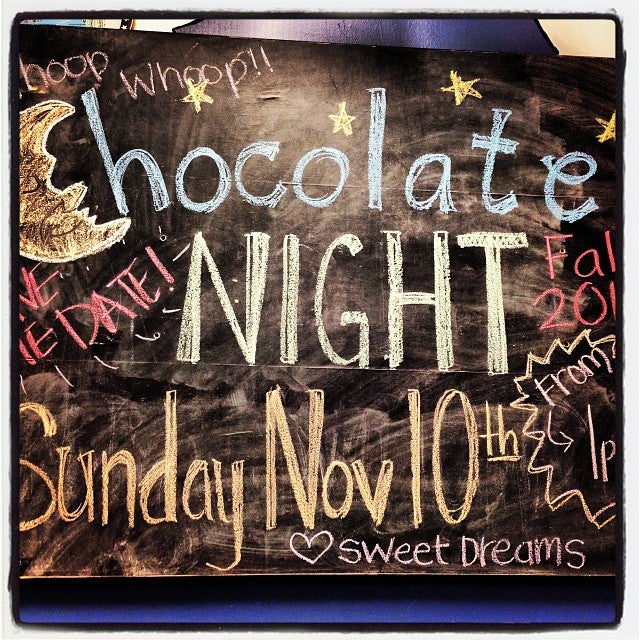 hoop Whoop!!
hocolate
NIGHT
VE
E DATE!
Fal
201
From
1p
Sunday Nov 10th
♡ sweet Dreams